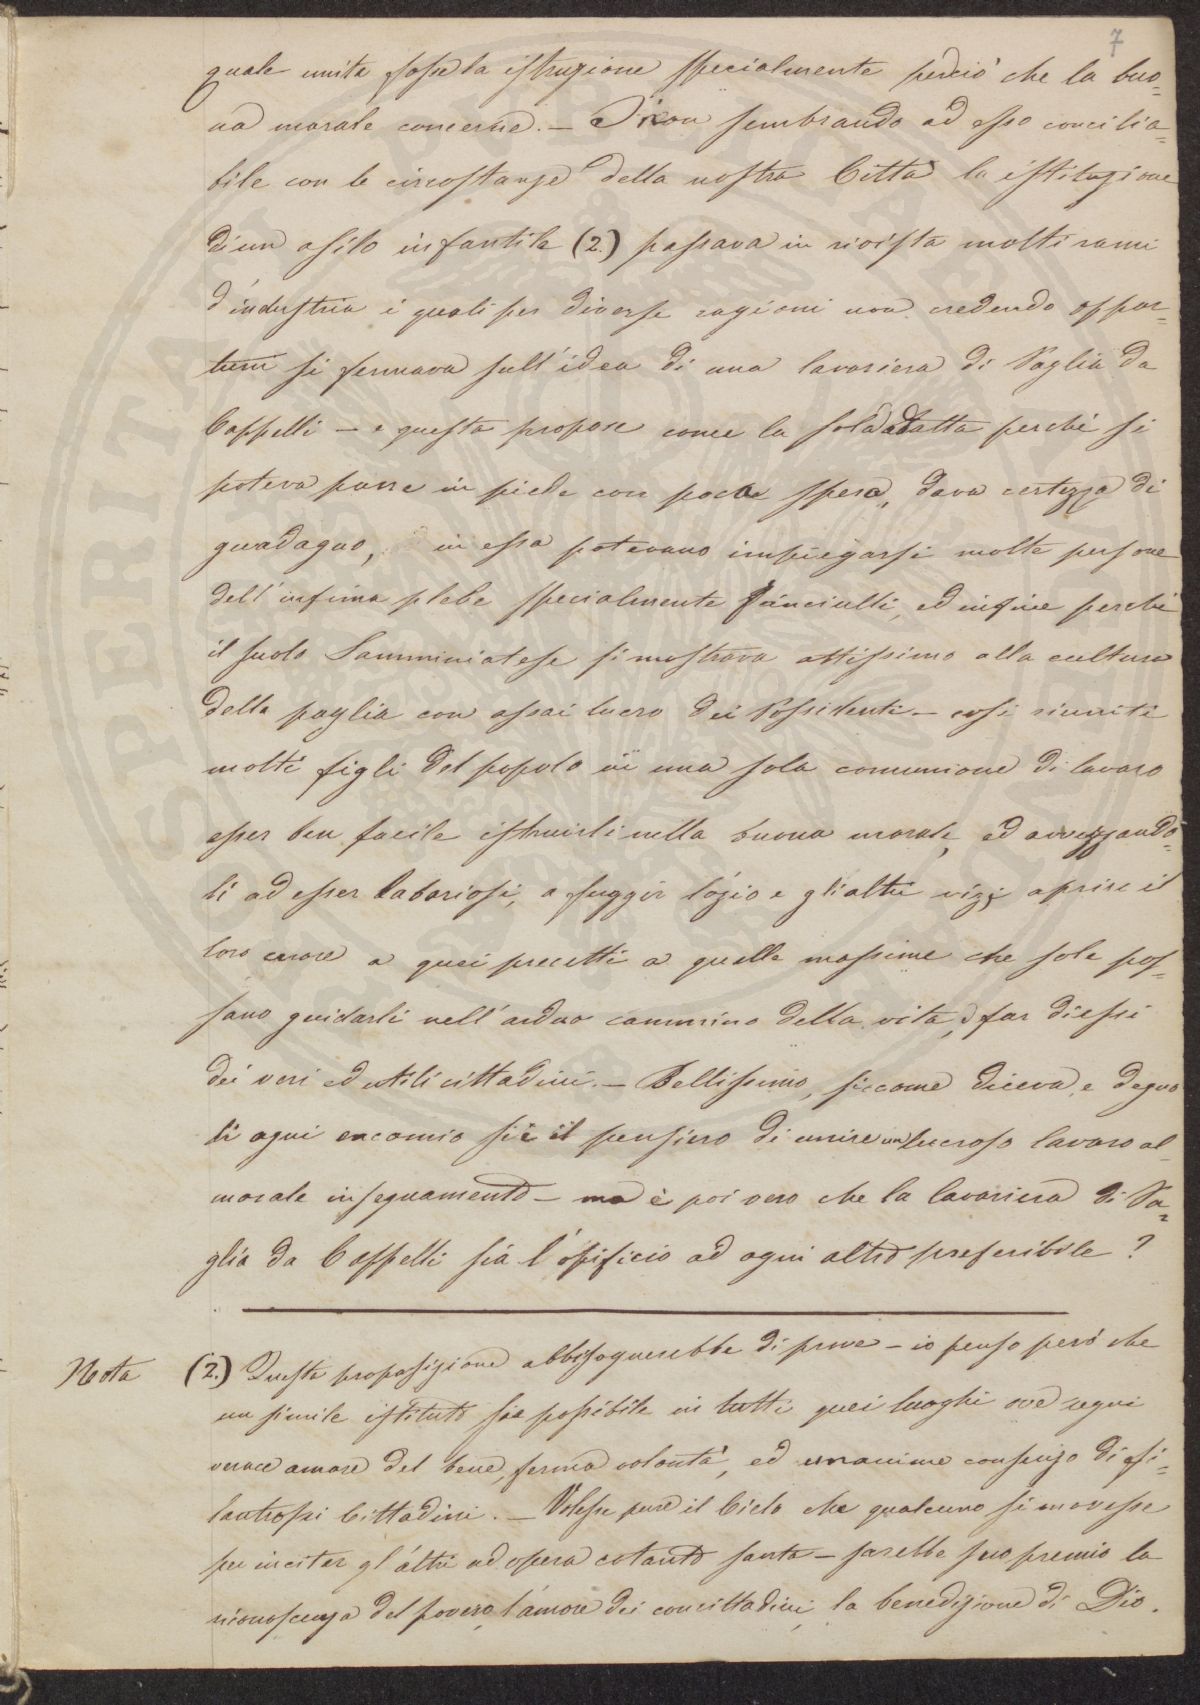 7
quale unita fosse la istruzione specialmente perciò che la buo=
na morale concerne. – Non sembrando ad esso concilia=
bile con le circostanze della nostra Città la istituzione
di un asilo infantile (2.) passava in rivista molti rami
d'industria i quali per diverse ragioni non credendo oppor=
tuni si fermava sull'idea di una lavoriera di Paglia da
Cappelli – e questa propose come la sola adatta perchè si
poteva porre in piede con poca spesa, dava certezza di
guadagno, in essa potevano impiegarsi molte persone
dell'infima plebe specialmente fanciulli, ed infine perchè
il suolo Samminiatese si mostrava attissimo alla cultura
della paglia con assai lucro dei Possidenti – così riuniti
molti figli del popolo in una sola comunione di lavoro
esser ben facile istruirli nella buona morale, ed avvezzando=
li ad esser laboriosi, a fuggir l'ozio e gli altri vizj aprire il
loro cuore a quei precetti a quelle massime che sole pos=
sano guidarli nell'arduo cammino della vita, e far di essi
dei veri ed utili cittadini. – Bellissimo, siccome diceva, e degno
di ogni encomio si è il pensiero di unire un lucroso lavoro al
morale insegnamento – ma è poi vero che la lavoriera di Pa=
glia da Cappelli sia l'opificio ad ogni altro preferibile ?
Nota (2.) Questa proposizione abbisognerebbe di prove – io penso però che
un simile istituto sia possibile in tutti quei luoghi ove regni
verace amore del bene, ferma volontà, ed unanime consenso di fi=
lantropi Cittadini. – Volesse pure il Cielo che qualcuno si movesse
per inciter gl'altri ad opera cotanto santa – sarebbe suo premio la
riconoscenza del povero, l'amore dei concittadini, la benedizione di Dio.